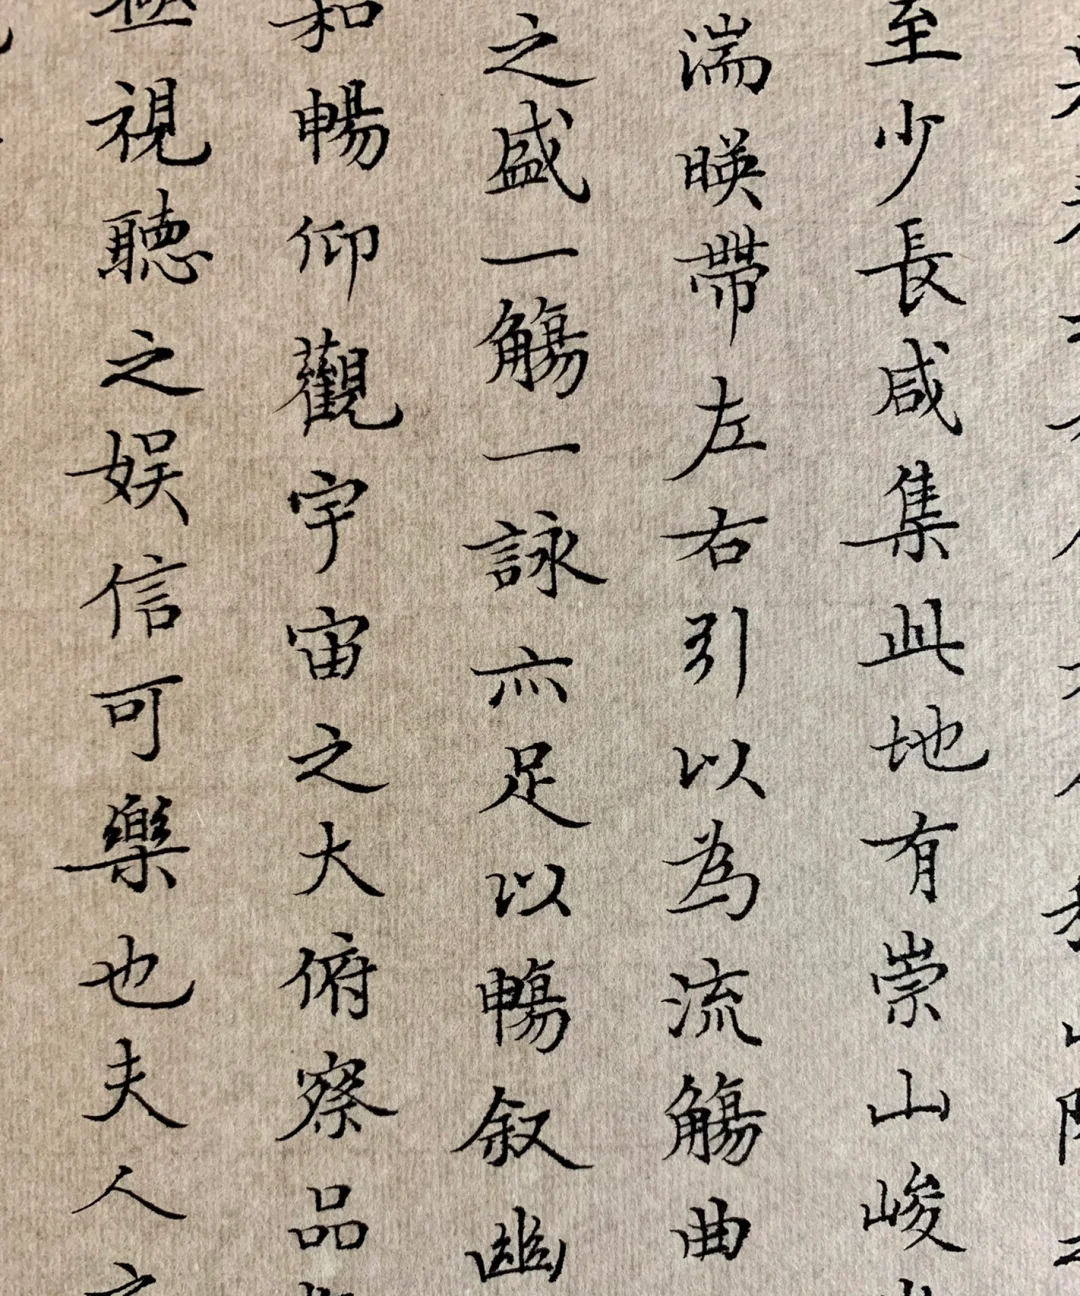 至少長咸集此地有崇山峻
湍暎帶左右引以為流觴曲
之盛一觴一詠亦足以暢叙幽
和暢仰觀宇宙之大俯察品
極視聽之娱信可樂也夫人